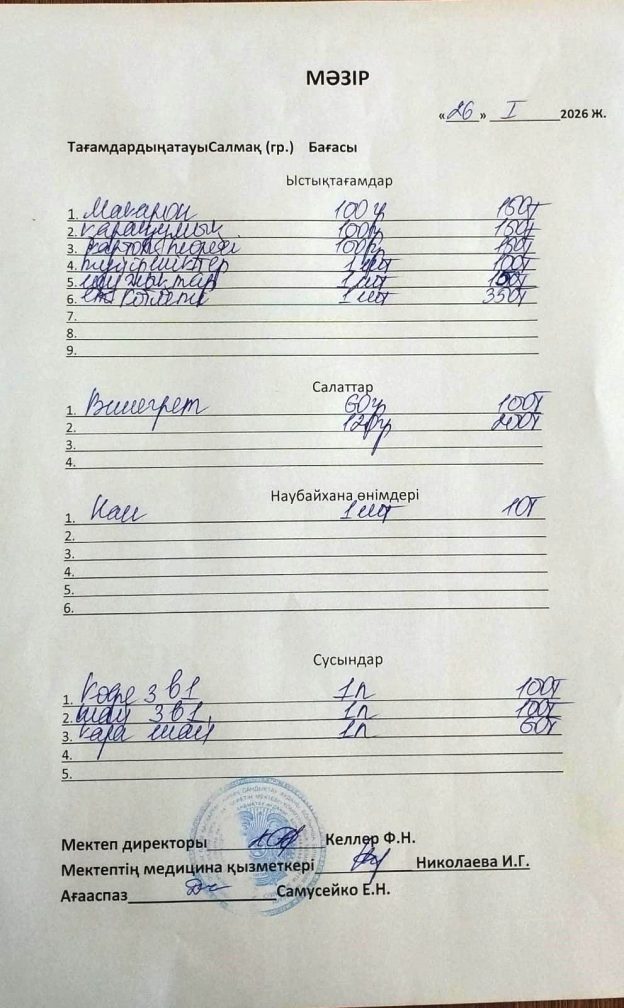 МӘЗІР
«26» I 2026 Ж.
ТағамдардыңатауыСалмақ (гр.) Бағасы
Ыстықтағамдар
1. Макарон 100гр 150т
2. қарақұмық 100гр 150т
3. картоп пюреді 100гр 150т
4. 1 шт 100т
5. шұжықтар 1 шт
6. ет котлеті 1 шт 350т
7.
8.
9.
Салаттар
1. Винегрет 60гр 100т
2. 120гр 200т
3.
4.
Наубайхана өнімдері
1. Нан 1 шт 10т
2.
3.
4.
5.
6.
Сусындар
1. Кофе 3 в1 1п 100т
2. шай 3 в1 1п 100т
3. қара шай 1п 60т
4.
5.
Мектеп директоры Келлер Ф.Н.
Мектептің медицина қызметкері Николаева И.Г.
Ағааспаз Самусейко Е.Н.